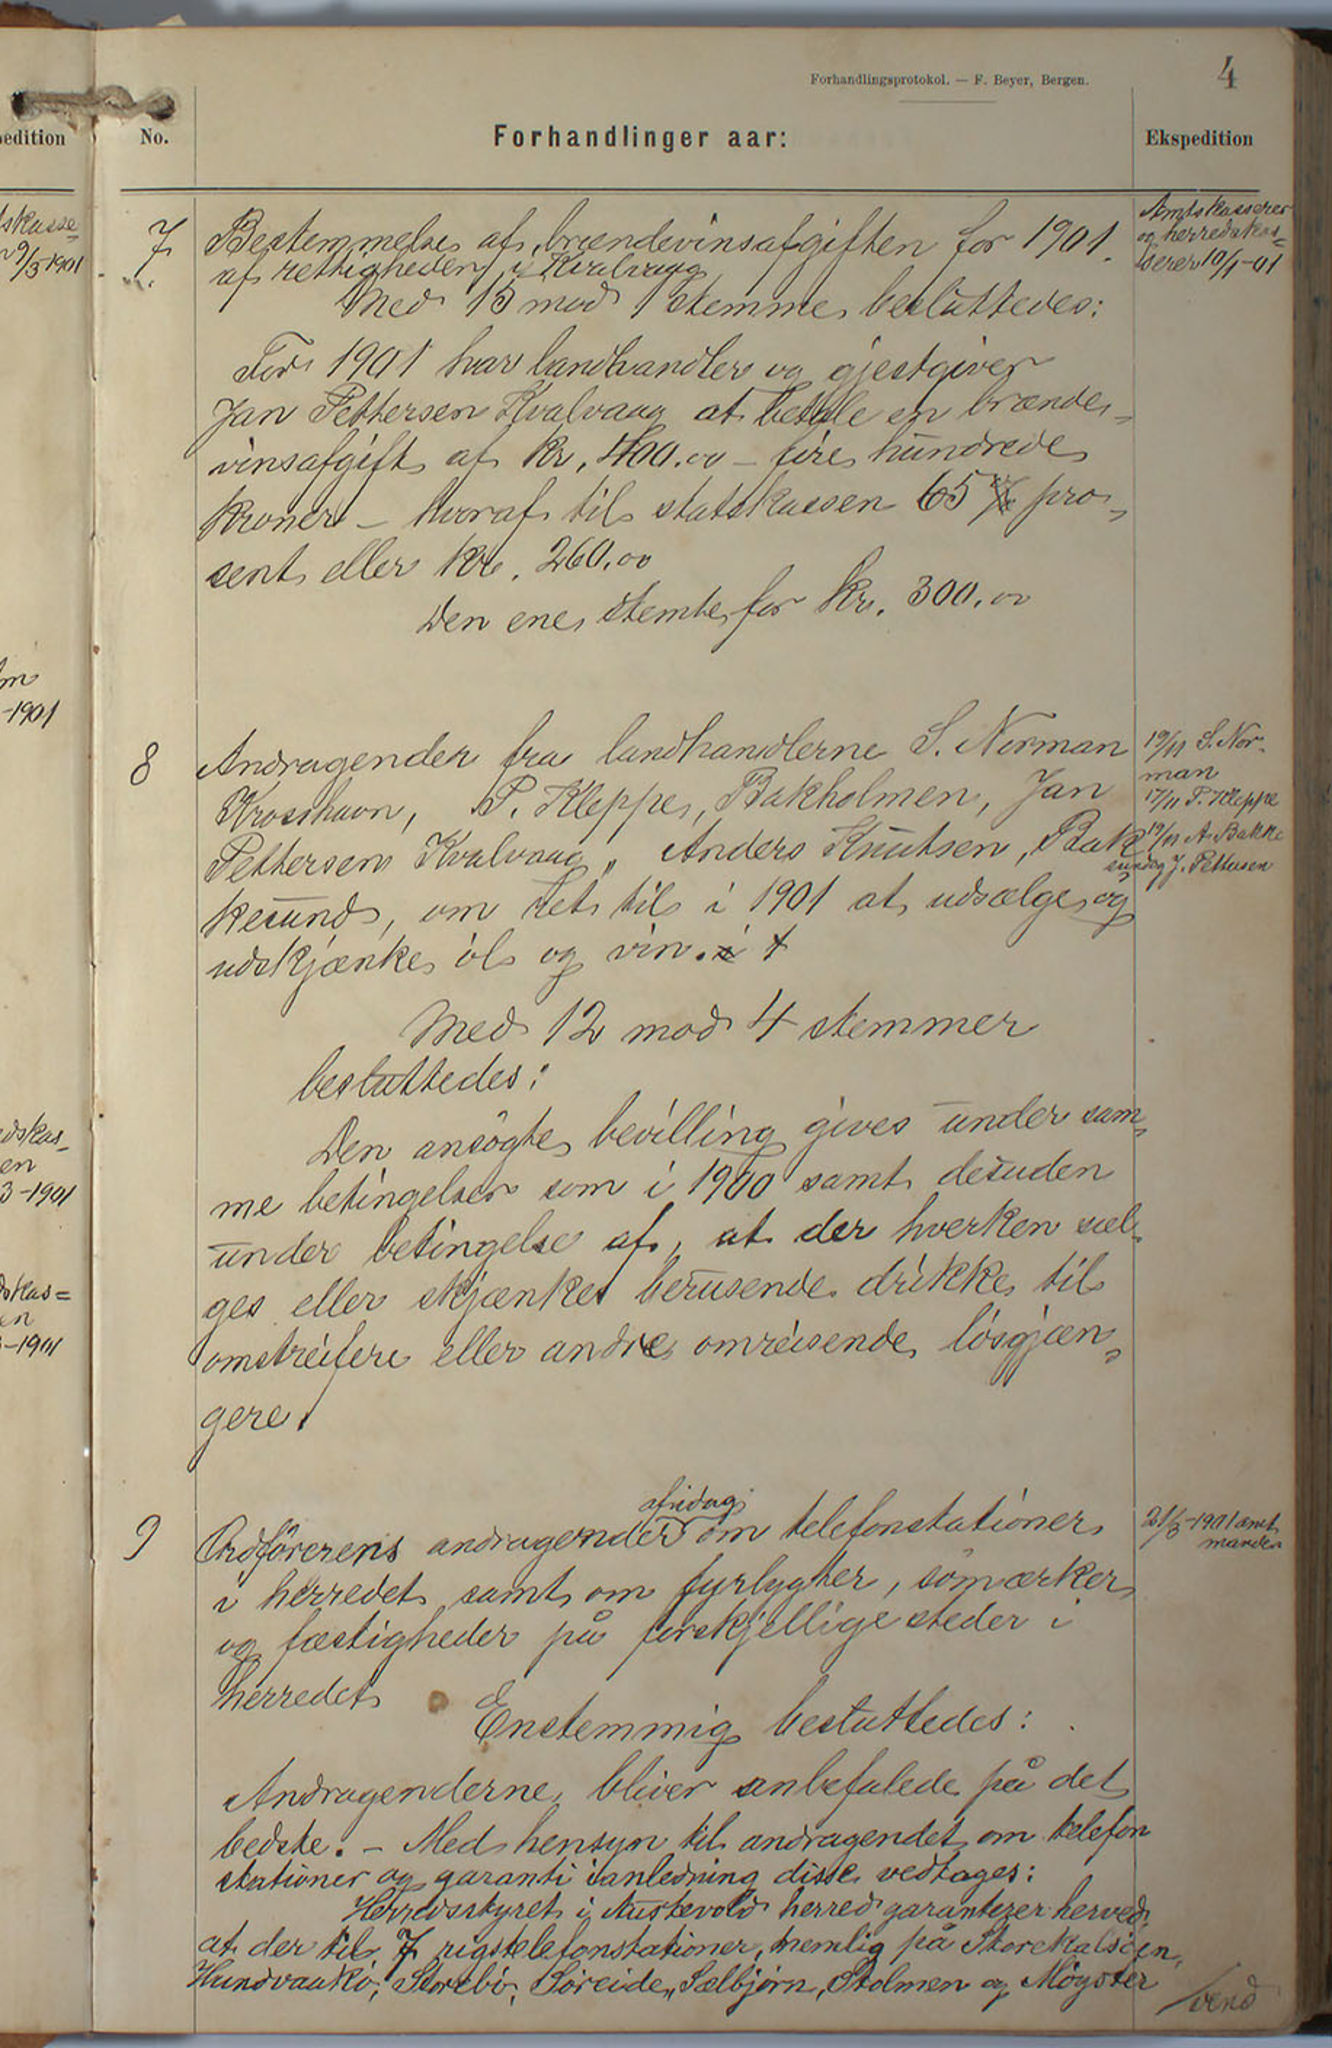 Forhandlingsprotokol. — F. Beyer, Bergen.
4
pedition
No.
Forhandlinger aar:
Ekspedition
tskasse
9/3-1901
m
-1901
dskas-
en
3-1901
dskas=
en
-1901
7
Bestemmelse af brændevinsafgiften for 1901.
af rettigheden i Kvalvaag
Med 15 mod 1 stemme besluttedes:
For 1901 har landhandler og gjestgiver
Jan Pettersen Kvalvaag at betale en brænde-
vinsafgift af kr. 400.00 – fire hundrede
kroner – hvoraf til statskassen 65 pro-
sent eller kr. 260.00
Den ene stemte for kr. 300.00
Amtskasserer
og herredskas=
serer 10/1-01
8
Andragender fra landhandlerne S. Norman
Krosshavn, P. Kleppe, Bakholmen, Jan
Pettersen Kvalvaag, Anders Knutsen, Bak
kesund, om ret til i 1901 at udsælge og
udskjænke øl og vin.
Med 12 mod 4 stemmer
besluttedes:
Den ansøgte bevilling gives under sam-
me betingelser som i 1900 samt desuden
under betingelse af, at der hverken sæl-
ges eller skjænkes berusende drikke til
omstreifere eller andre omreisende løsgjæn-
gere.
19/11 S. Nor-
man
17/11 P. Kleppe
19/11 A. Bakke
sund og J. Pettersen
9
afidag
Ordførerens andragender om telefonstationer
i herredet samt om fyrlygter, sømærker
og fæstigheder på forskjellige steder i
herredet
Enstemmig besluttedes:
Andragenderne bliver anbefalede på det
bedste. – Med hensyn til andragendet om telefon
stationer og garanti i anledning disse vedtages:
Herredsstyret i Austevold herred garanterer herved
at der til 7 rigstelefonstationer, nemlig på Storekalsøen,
Hundvaakø, Storebø, Søreide, Sælbjørn, Stolmen og Møgster
21/3-1901 amt
manden
/vend